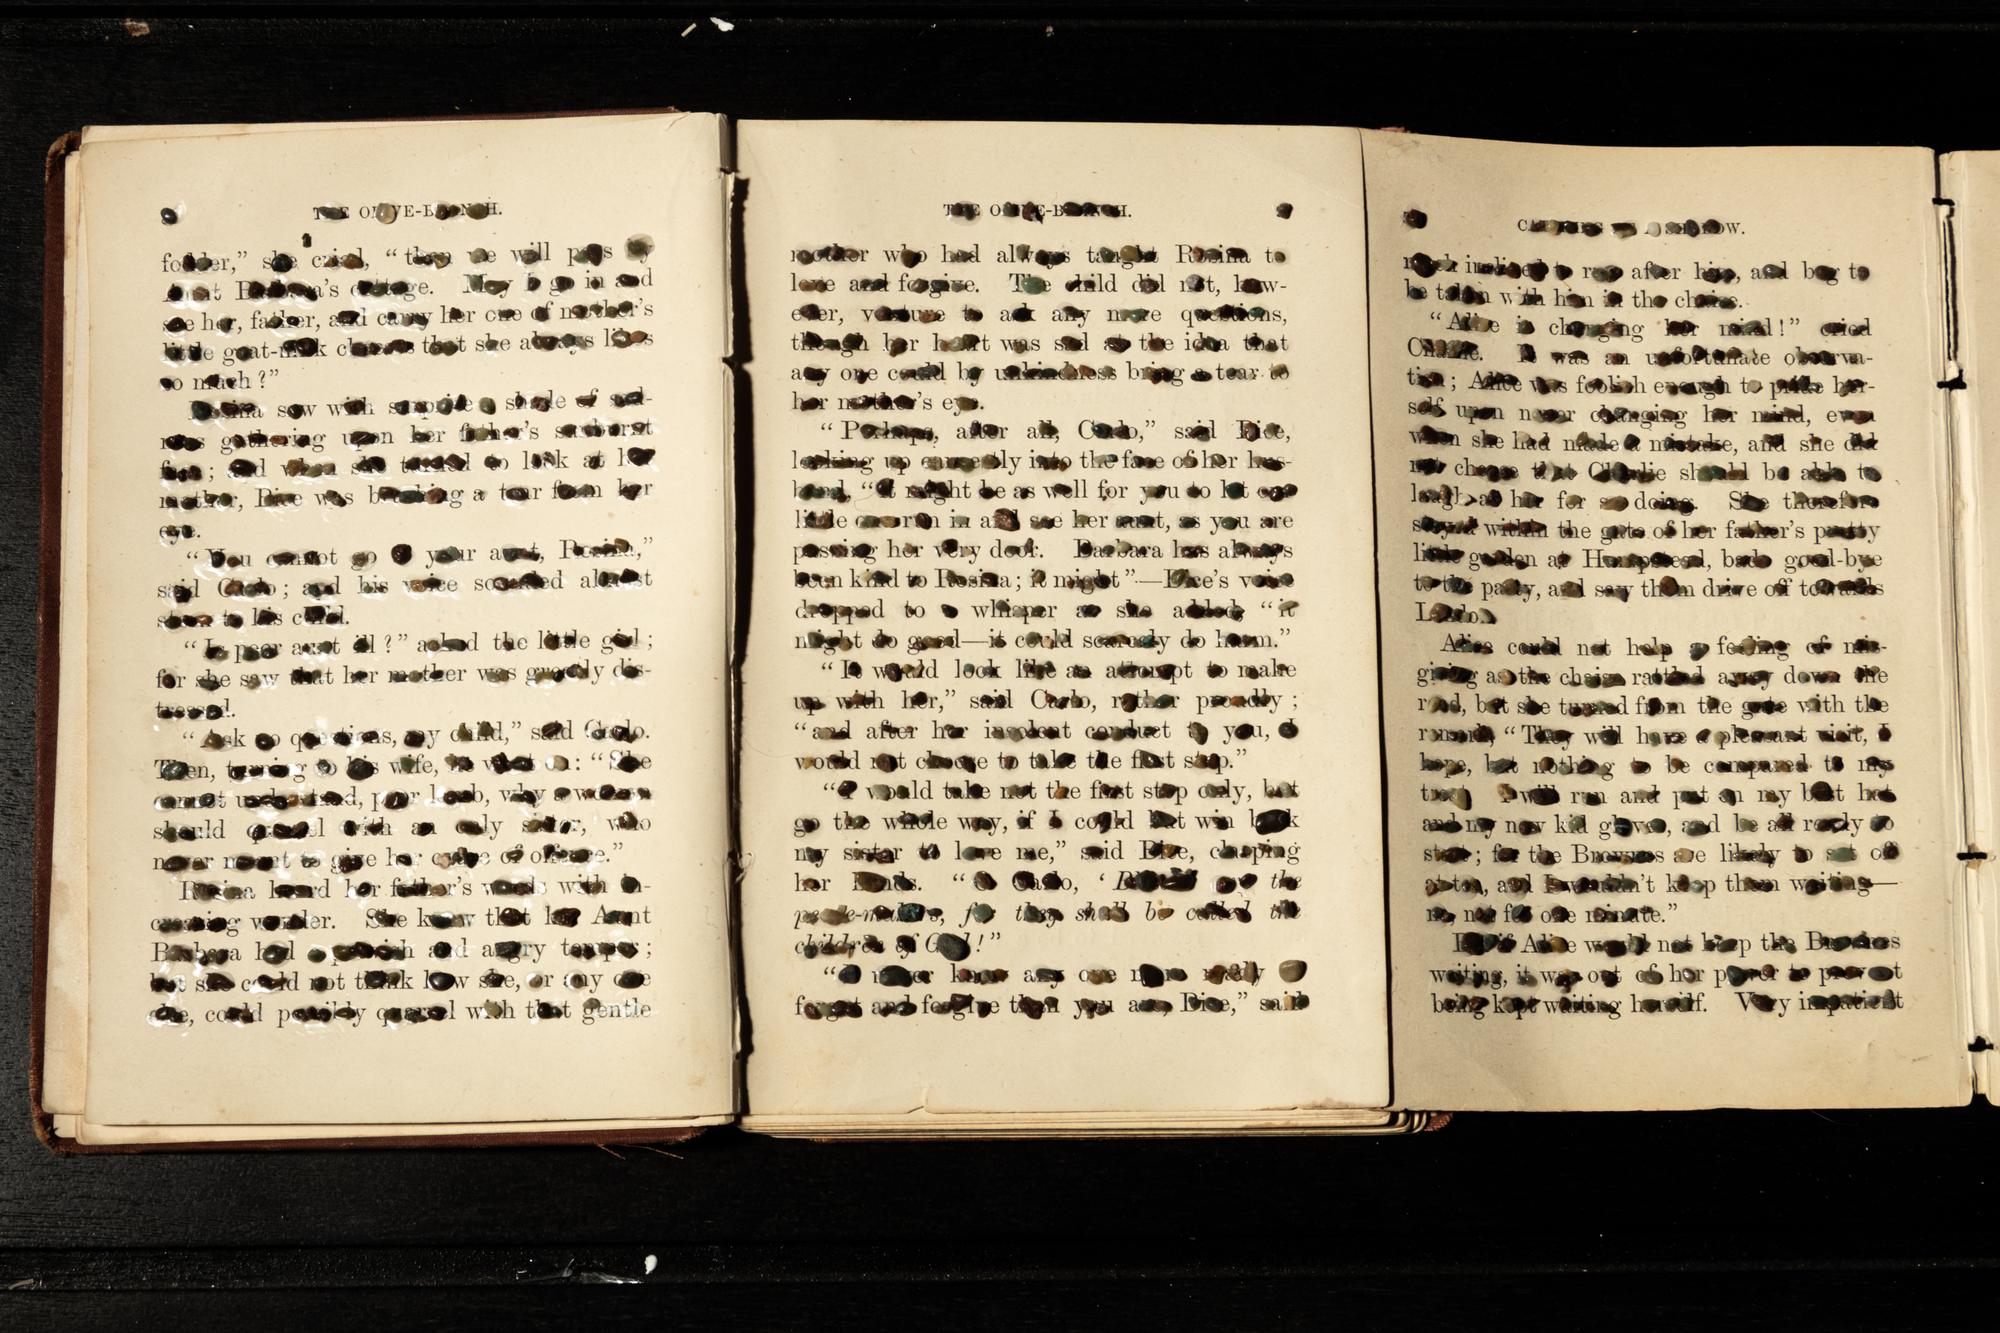 THE OLIVE-BRANCH.
fodder," she cried, "then we will pass by
Aunt Barbara's cottage. May I go in and
see her, father, and carry her one of mother's
little goat-milk cheeses that she always likes
so much?"
Rosina saw with surprise a shade of sad-
ness gathering upon her father's sunburnt
face; and when she turned to look at her
mother, Bice was brushing a tear from her
eye.
"You cannot go to your aunt, Rosina,"
said Carlo; and his voice sounded almost
stern to his child.
"Is poor aunt ill?" asked the little girl;
for she saw that her mother was greatly dis-
tressed.
"Ask no questions, my child," said Carlo.
Then, turning to his wife, he went on: "She
cannot understand, poor lamb, why a woman
should quarrel with an only sister, who
never meant to give her cause of offence."
Rosina heard her father's words with in-
creasing wonder. She knew that her Aunt
Barbara had a peevish and angry temper;
but she could not think how she, or any one
else, could possibly quarrel with that gentle
THE OLIVE-BRANCH.
mother who had always taught Rosina to
love and forgive. The child did not, how-
ever, venture to ask any more questions,
though her heart was sad at the idea that
any one could by unkindness bring a tear to
her mother's eye.
"Perhaps, after all, Carlo," said Bice,
looking up earnestly into the face of her hus-
band, "it might be as well for you to let our
little one run in and see her aunt, as you are
passing her very door. Barbara has always
been kind to Rosina; it might"—Bice's voice
dropped to a whisper as she added, "it
might do good—it could scarcely do harm."
"It would look like an attempt to make
up with her," said Carlo, rather proudly;
"and after her insolent conduct to you, I
would not choose to take the first step."
"I would take not the first step only, but
go the whole way, if I could but win back
my sister to love me," said Bice, clasping
her hands. "O Carlo, 'Blessed are the
peace-makers, for they shall be called the
children of God!"
"I never knew any one more ready to
forget and forgive than you are, Bice," said
much inclined to run after him, and beg to
be taken with him in the chaise.
"Alice is changing her mind!" cried
Charlie. It was an unfortunate observa-
tion; Alice was foolish enough to pride her-
self upon never changing her mind, even
when she had made a mistake, and she did
not choose that Charlie should be able to
laugh at her for so doing. She therefore
stayed within the gate of her father's pretty
little garden at Hampstead, bade good-bye
to the party, and saw them drive off towards
London.
Alice could not help a feeling of mis-
giving as the chaise rattled away down the
road, but she turned from the gate with the
remark, "They will have a pleasant visit, I
hope, but nothing to be compared to my
treat. I will run and put on my best hat
and my new kid gloves, and be all ready to
start; for the Brownes are likely to set off
at ten, and I wouldn't keep them waiting—
no, not for one minute."
But if Alice would not keep the Brownes
waiting, it was out of her power to prevent
being kept waiting herself. Very impatient